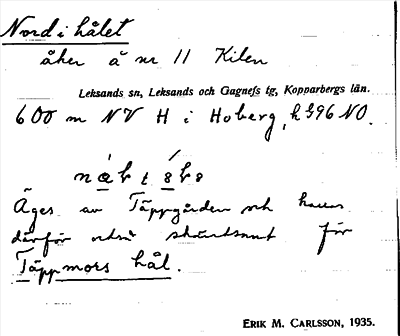 Nord i hålet
åker å nr 11 Kilen
Leksands sn, Leksands och Gagnefs tg, Kopparbergs län.
600 m NV H i Hoberg, NO.
Äges av Täppgården och kallas
därför också skämtsamt för
Täppmors hål.
ERIK M. CARLSSON, 1935.